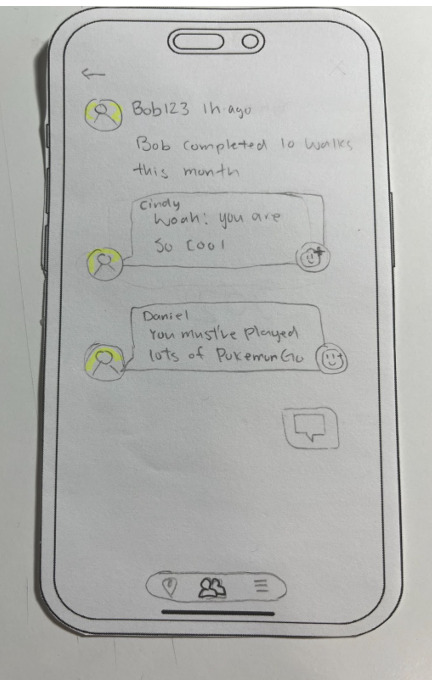 Bob123 1h ago
Bob completed 10 walks
this month
Cindy
Woah! you are
so cool
Daniel
You must've played
lots of PokemonGo